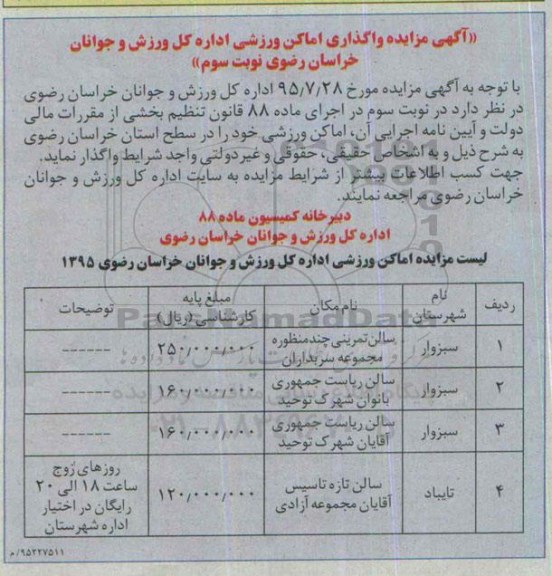 «آگهی مزایده واگذاری اماکن ورزشی اداره کل ورزش و جوانان
خراسان رضوی نوبت سوم»
با توجه به آگهی مزایده مورخ ۹۵/۷/۲۸ اداره کل ورزش و جوانان خراسان رضوی
در نظر دارد در نوبت سوم در اجرای ماده ۸۸ قانون تنظیم بخشی از مقررات مالی
دولت و آیین نامه اجرایی آن، اماکن ورزشی خود را در سطح استان خراسان رضوی
به شرح ذیل و به اشخاص حقیقی، حقوقی و غیردولتی واجد شرایط واگذار نماید.
جهت کسب اطلاعات بیشتر از شرایط مزایده به سایت اداره کل ورزش و جوانان
خراسان رضوی مراجعه نمایند.
دبیرخانه کمیسیون ماده ۸۸
اداره کل ورزش و جوانان خراسان رضوی
لیست مزایده اماکن ورزشی اداره کل ورزش و جوانان خراسان رضوی ۱۳۹۵
ردیف نام شهرستان نام مکان مبلغ پایه کارشناسی (ریال) توضیحات
۱ سبزوار سالن تمرینی چند منظوره مجموعه سربداران ۲۵۰/۰۰۰/۰۰۰ ------
۲ سبزوار سالن ریاست جمهوری بانوان شهرک توحید ۱۶۰/۰۰۰/۰۰۰ ------
۳ سبزوار سالن ریاست جمهوری آقایان شهرک توحید ۱۶۰/۰۰۰/۰۰۰ ------
۴ تایباد سالن تازه تاسیس آقایان مجموعه آزادی ۱۲۰/۰۰۰/۰۰۰ روزهای زوج ساعت ۱۸ الی ۲۰ رایگان در اختیار اداره شهرستان
۹۵۲۲۷۵۱۱/م
ParsNamadData